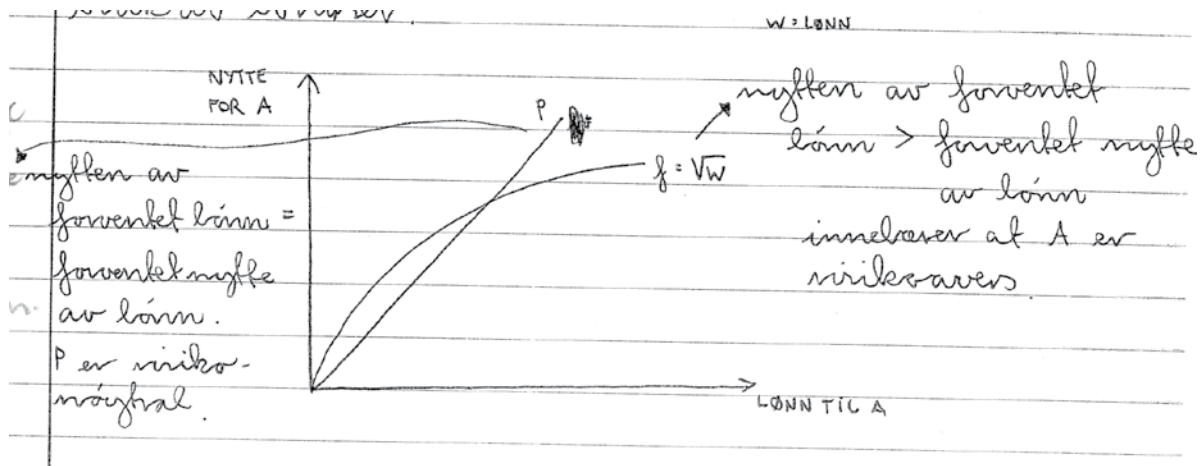 W = LØNN
NYTTE
FOR A
P
f = √W
nytten av forventet
lønn > forventet nytte
av lønn
innebærer at A er
risikoavers
nytten av
forventet lønn =
forventet nytte
av lønn.
P er risiko-
nøytral.
LØNN TIL A